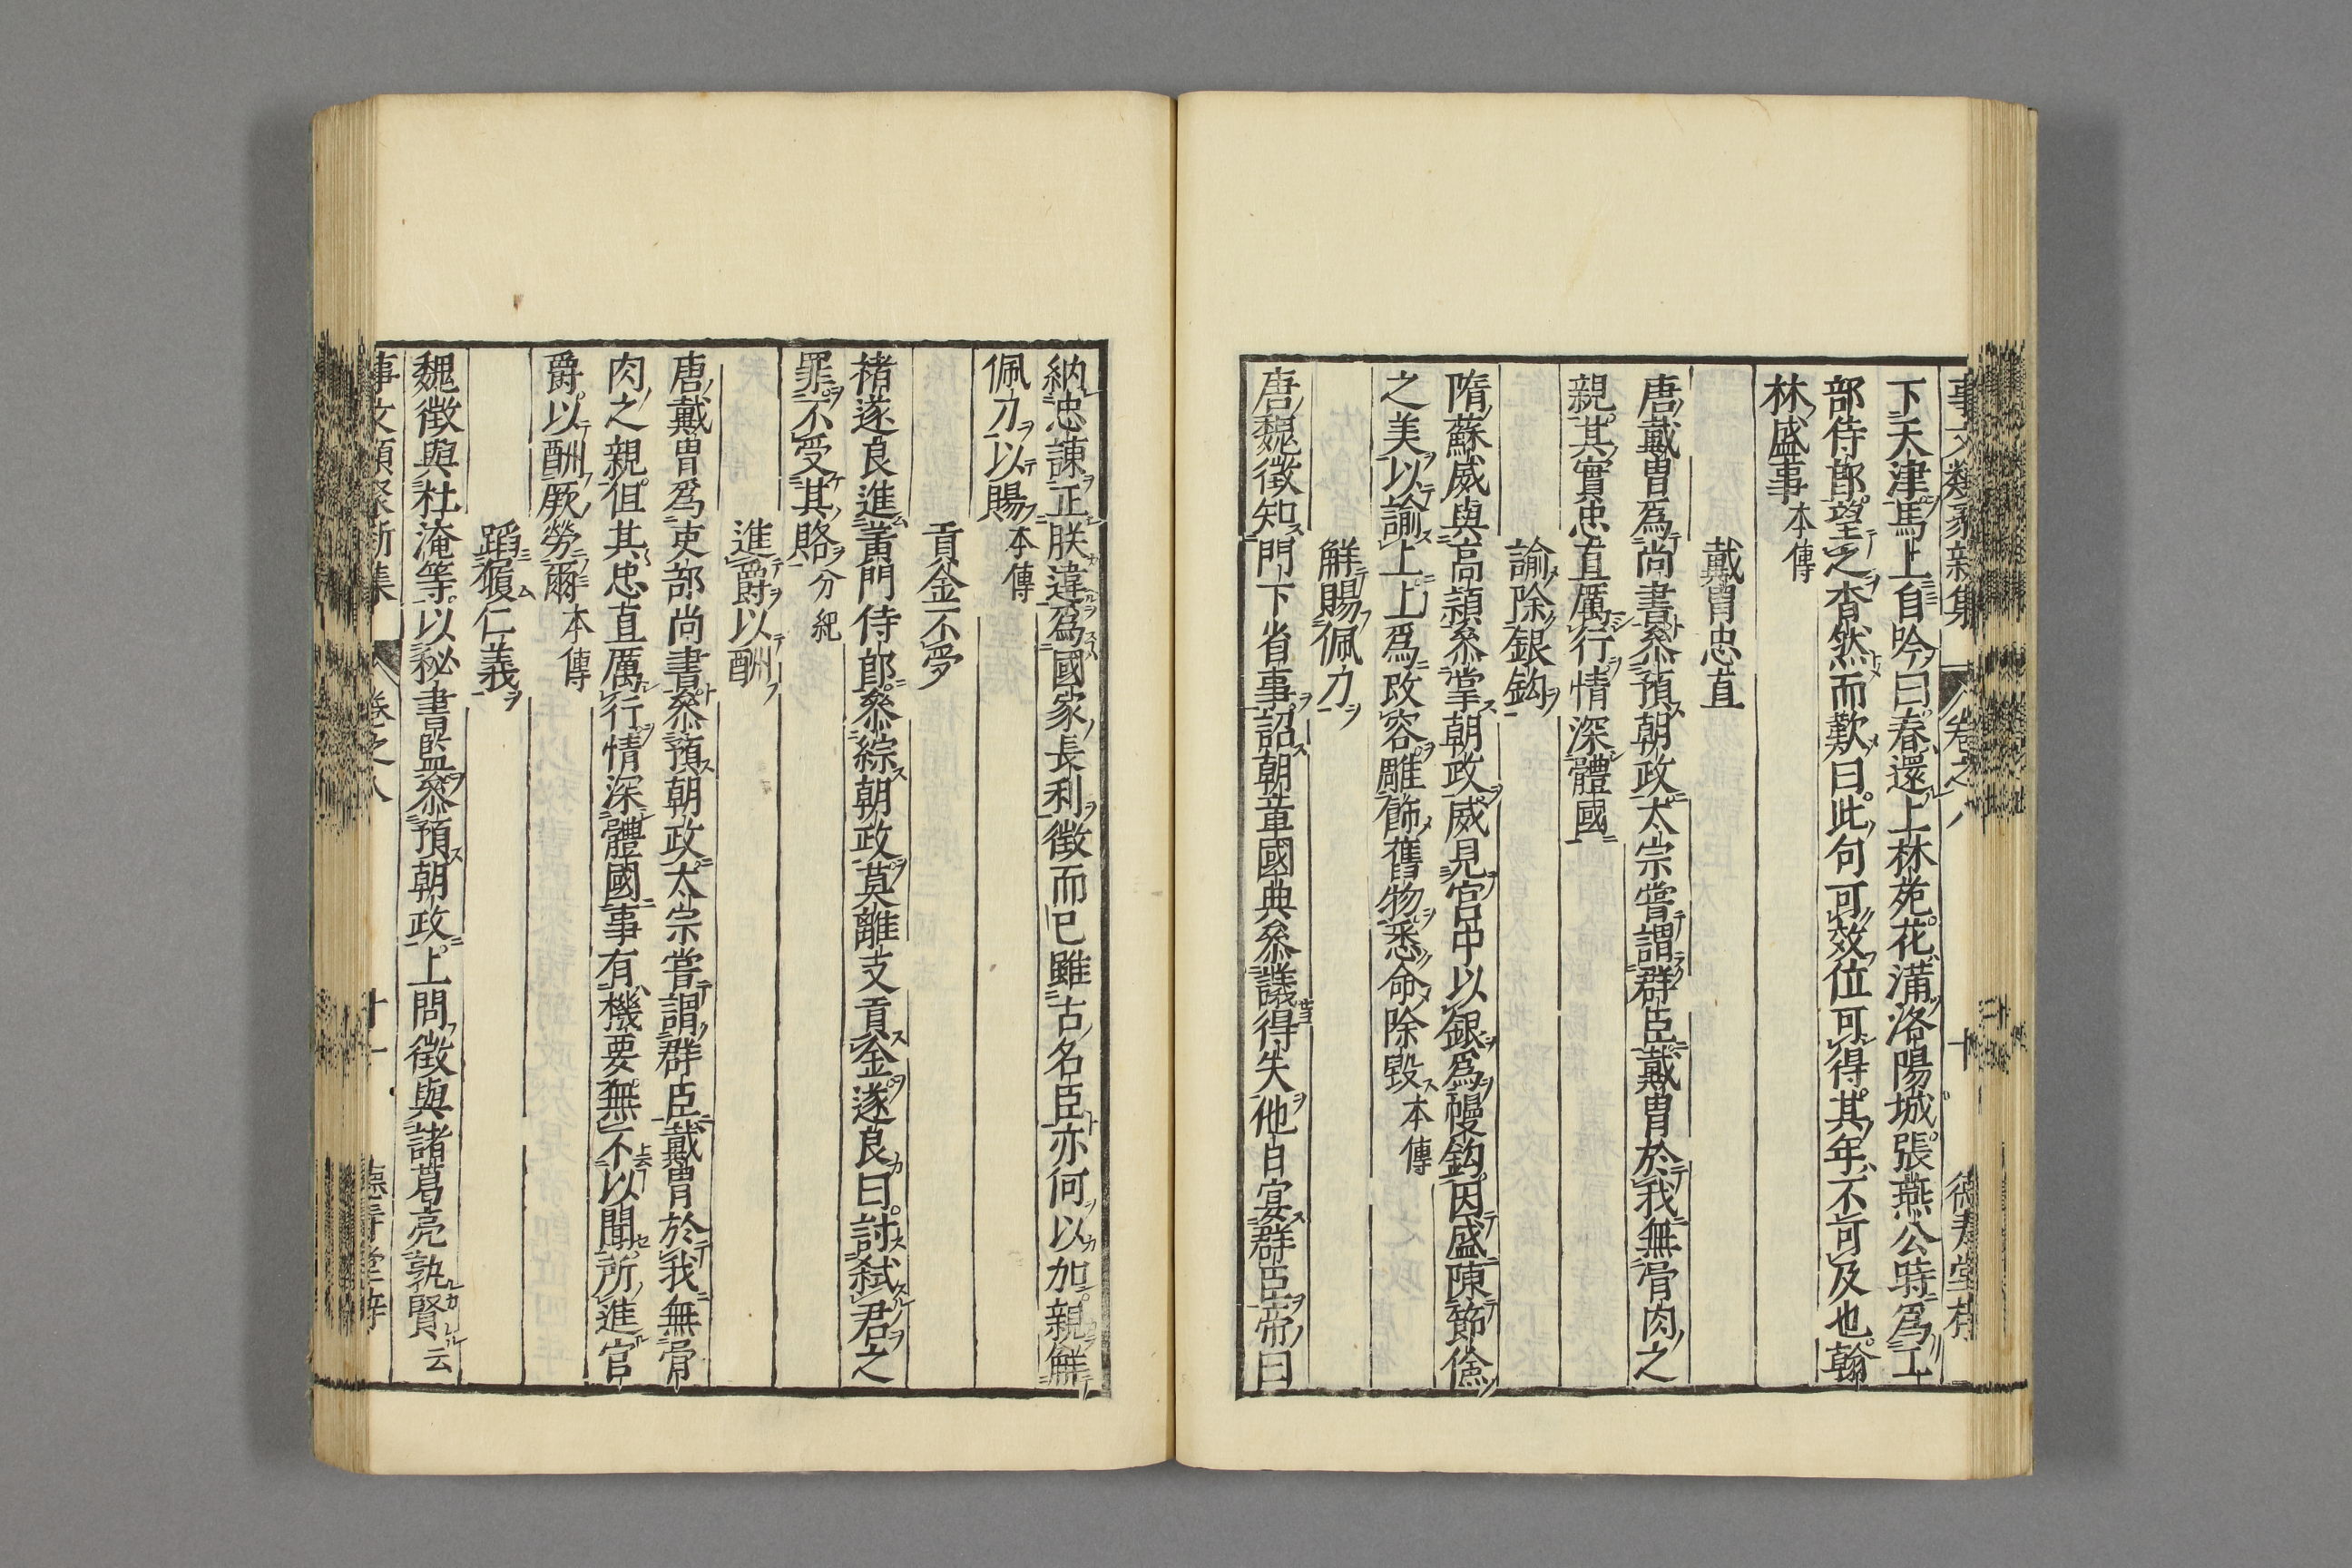 事文類聚新集 卷之八 十 德壽堂梓
下天津馬上自吟曰春還上林苑花滿洛陽城張燕公時爲工
部侍郎望之杳然而歎曰此句可效位可得其年不可及也翰
林盛事本傳
戴冑忠直
唐戴冑爲尚書叅預朝政太宗嘗謂群臣戴冑於我無骨肉之
親其實忠直厲行情深體國
諭除銀鈎
隋蘇威與高熲叅掌朝政威見宮中以銀爲幔鈎因盛陳節儉
之美以諭上上爲改容雕飾舊物悉命除毀本傳
觧賜佩刀
唐魏徵知門下省事詔朝章國典叅議得失他日宴群臣帝曰
納忠諫正朕違爲國家長利徵而已雖古名臣亦何以加親觧
佩刀以賜本傳
貢金不受
褚遂良進黄門侍郎叅綜朝政莫離支貢金遂良曰討弒君之
罪不受其賂分紀
進爵以酬
唐戴冑爲吏部尚書叅預朝政太宗嘗謂群臣戴冑於我無骨
肉之親但其忠直厲行情深體國事有機要無不以聞所進官
爵以酬厥勞爾本傳
蹈履仁義
魏徵與杜淹等以秘書監叅預朝政上問徵與諸葛亮孰賢云
事文類聚新集 卷之八 十一 德壽堂梓